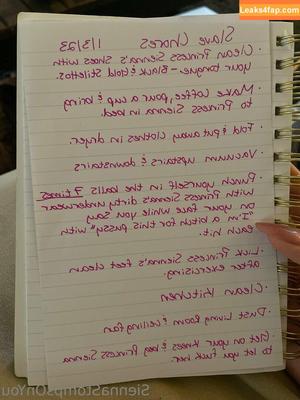 Leaks4fap.com
Slave Chores 1/3/23
· Clean Princess Sienna's Shoes with
your tongue - Black & Gold Stilettos.
· Make Coffee, pour a cup & bring
to Princess Sienna in bed.
· Fold & put away clothes in dryer.
· Vacuum upstairs & downstairs
· Punch yourself in the balls 7 times
with Princess Sienna's dirty underwear
on your face while you say
"I'm a bitch for this pussy" with
each hit.
· Lick Princess Sienna's feet clean
after exercising.
· Clean Kitchen
· Dust Living Room & Ceiling fan
· Get on your knees & beg Princess Sienna
to let you fuck her.
SiennaStompsOnYou